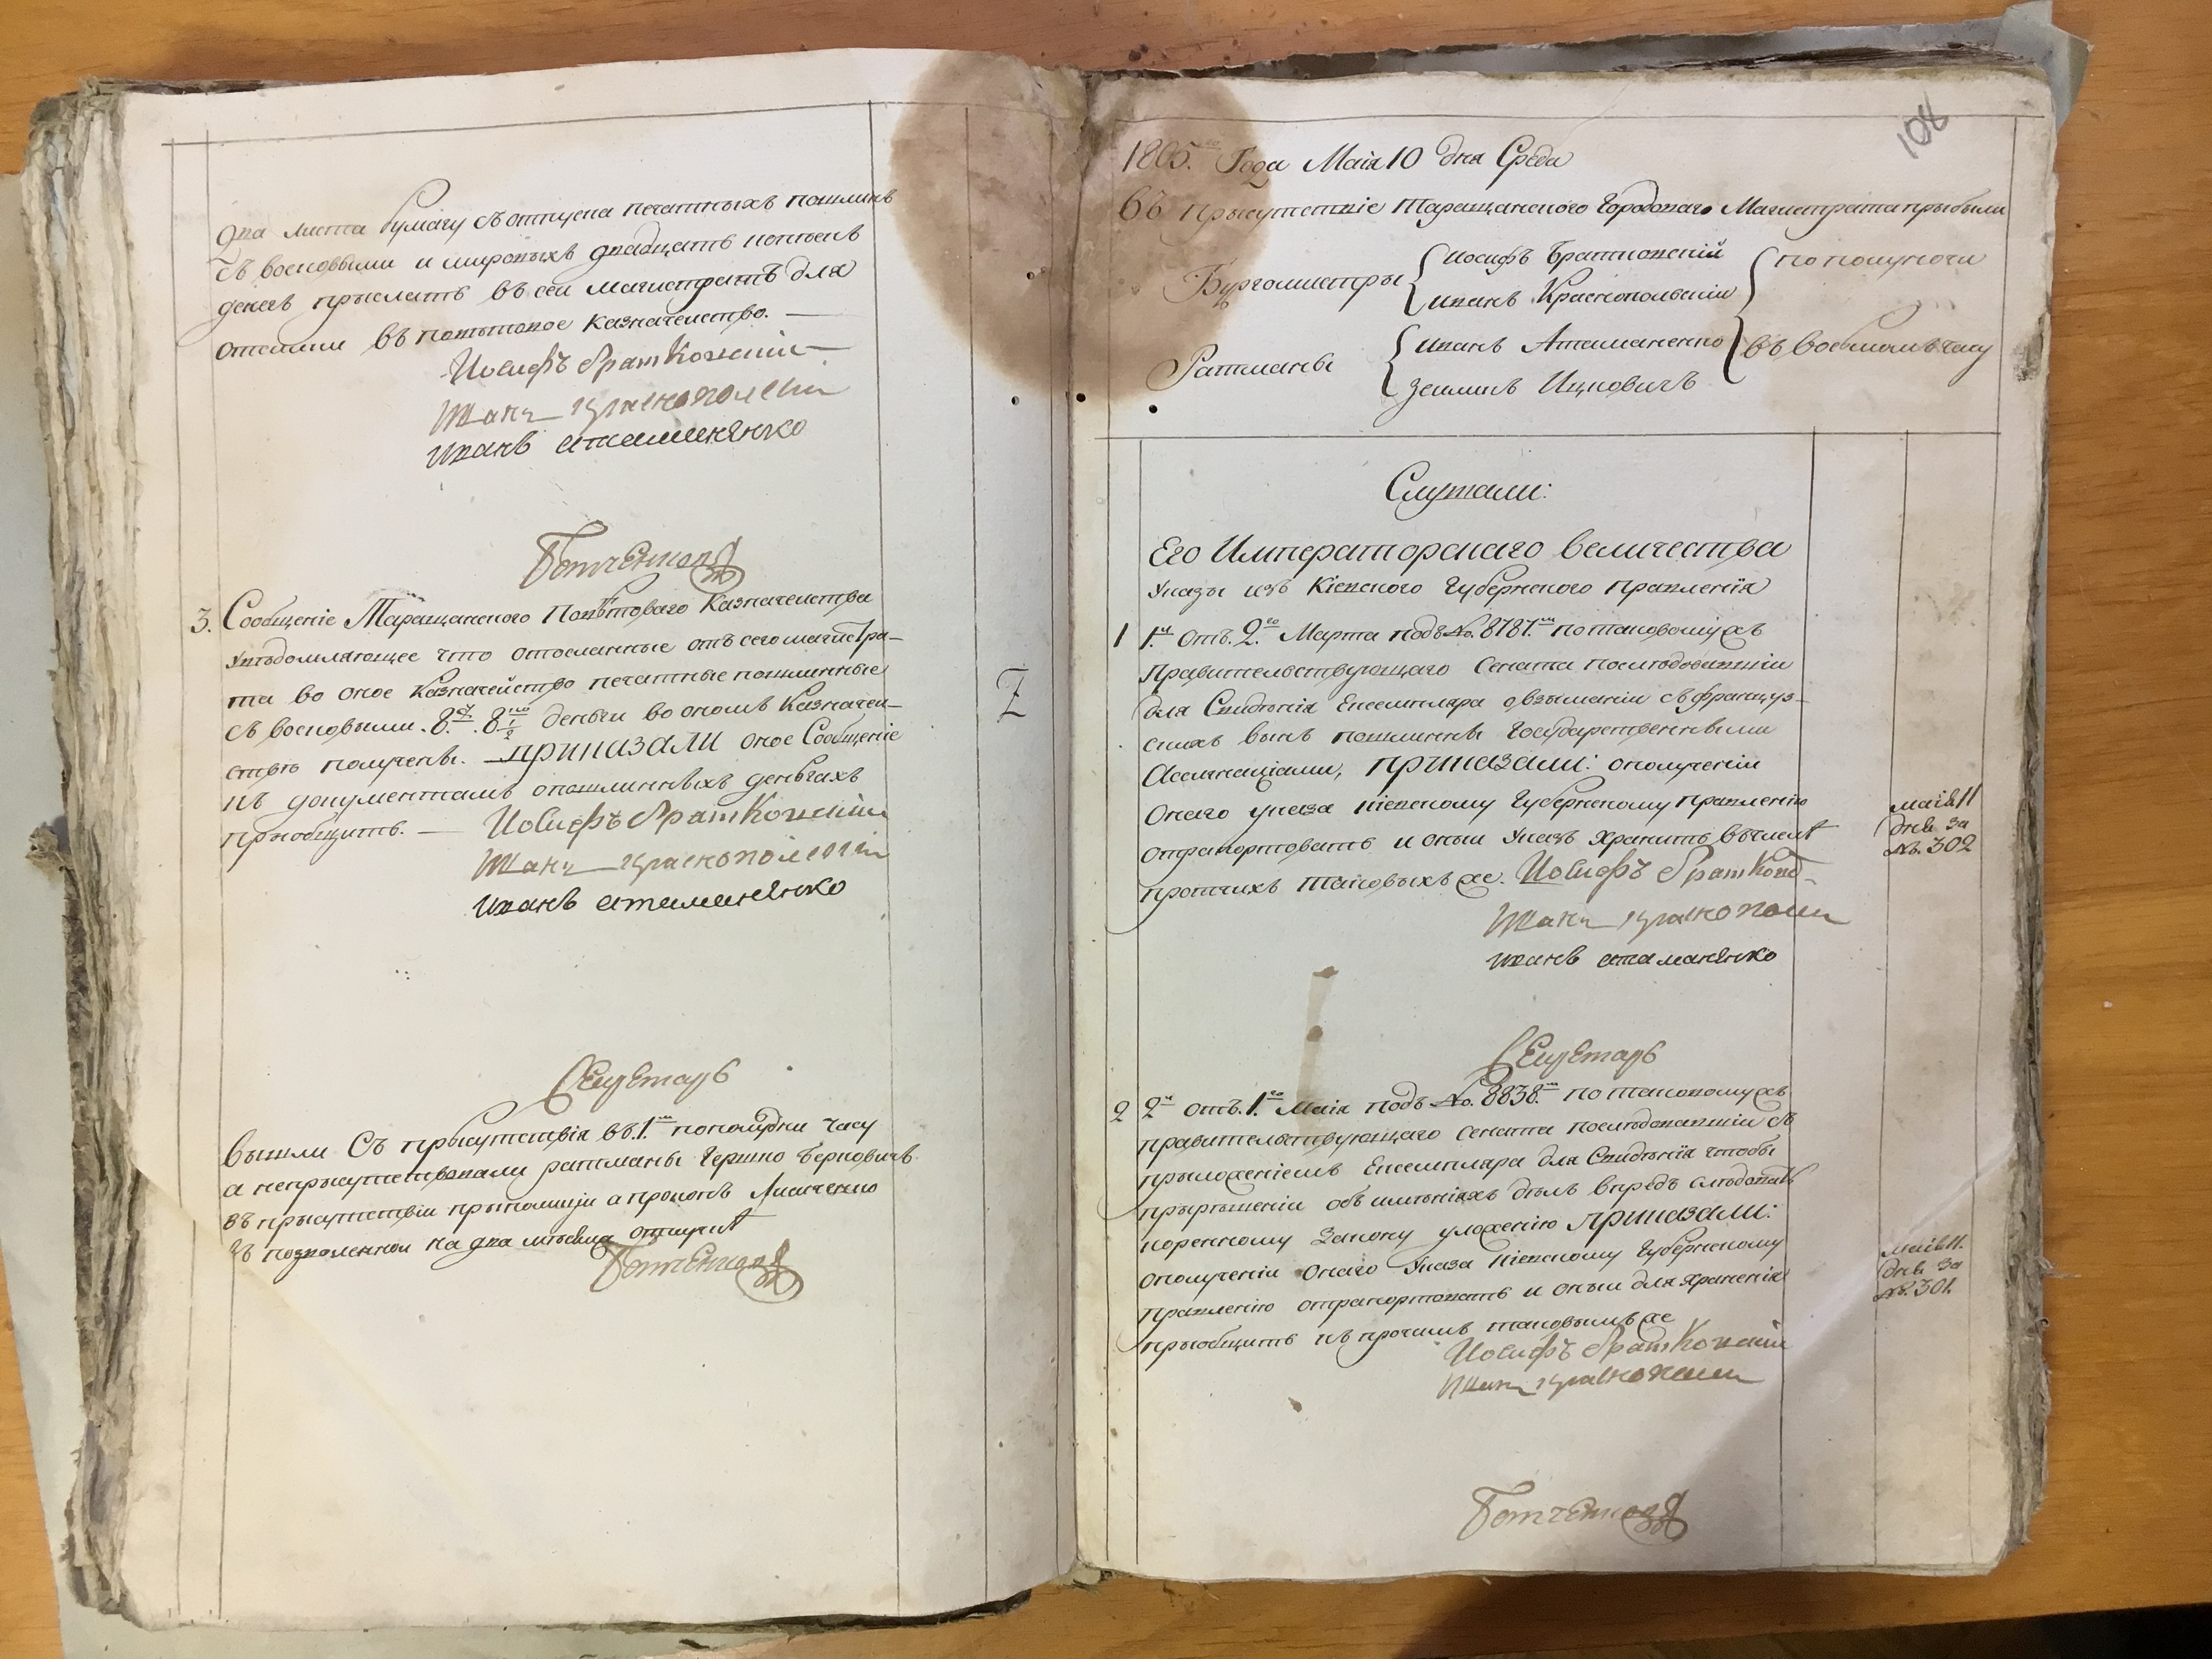 два листа бумагу съ отпуска печатныхъ пошлинъ
съ восковыми и широкихъ двадцать копѣекъ
денегъ прыслать въ сеи магистратъ для
отсилки въ повѣтовое казначеиство.
Иосифъ Братковскіи
Иванъ Краснополскіи
иванъ атаманѣнко
3. Сообщеніе Таращанского Повѣтоваго Казначеиства
увѣдомляющее что отосланные отъ сего магистра-
та во оное Казначейство печатные пошлинные
съ восковыми 8 р. 8 1/2 деньги во ономъ Казначеи-
ствѣ получены. приказали оное Сообщеніе
къ документамъ о пошлинныхъ деньгахъ
приобщить.
Иосифъ Братковскіи
Иванъ Краснополскіи
иванъ атаманѣнко
Секретарь
вышли Съ прысутствія въ 1.мъ пополудни часу
а непрысутствовали ратманы Гершко Берковичъ
въ прысутствіи а прокопъ Лисченко
въ позволенной на два мѣсяца отпускѣ
108
1805.го Года Маія 10 дня Среда
Въ прысутствіе Таращанского Городоваго Магистрата прыбыли
Бургомистры
Иосифъ Братковскій
иванъ Краснополскій
по полуночи
Ратманы
иванъ Атаманенко
Зелманъ Ицковичъ
въ восмомъ часу
Слушали:
Его Императорскаго величества
Указы изъ Кіевского Губернского правленія
1 1.й отъ 2.го Марта подъ №. 8787.мъ по таковому жъ
Правительствующаго Сената послѣдовавшіи
для Свидѣнія Екземпляра о взыманіи съ француз-
скихъ винъ пошлины Государственными
Ассигнаціами, приказали: о полученіи
Онаго указа кіевскому Губернскому правленію
отрапортовать и оныи указъ хранить въ числѣ
протчихъ таковыхъ же. Иосифъ Братков-
Иванъ Краснополски
иванъ атаманѣнко
маія 11
дня за
№. 302
Секретарь
2 2.й отъ 1.го Маія подъ №. 8838.мъ по таковому жъ
правительствующаго сената послѣдовавшіи съ
прыложеніемъ Екземпляра для Свидѣнія чтобы
прырѣшеніи объ имѣніяхъ дѣлъ впредь слѣдовать
коренному Закону уложенію приказали:
о полученіи Онаго Указа кіевскому Губернскому
правленію отрапортовать и оныи для храненія
прыобщить къ прочимъ таковымъ же
Иосифъ Братковскіи
Иванъ Краснополски
маія 11.
дня за
№. 301.